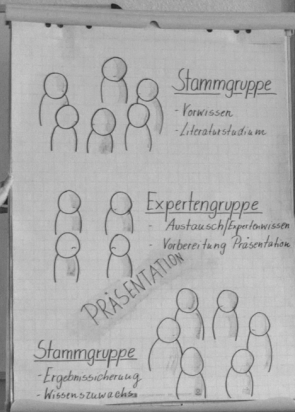 Stammgruppe
- Vorwissen
- Literaturstudium
Expertengruppe
- Austausch/Expertenwissen
- Vorbereitung Präsentation
PRÄSENTATION
Stammgruppe
- Ergebnissicherung
- Wissenszuwachs